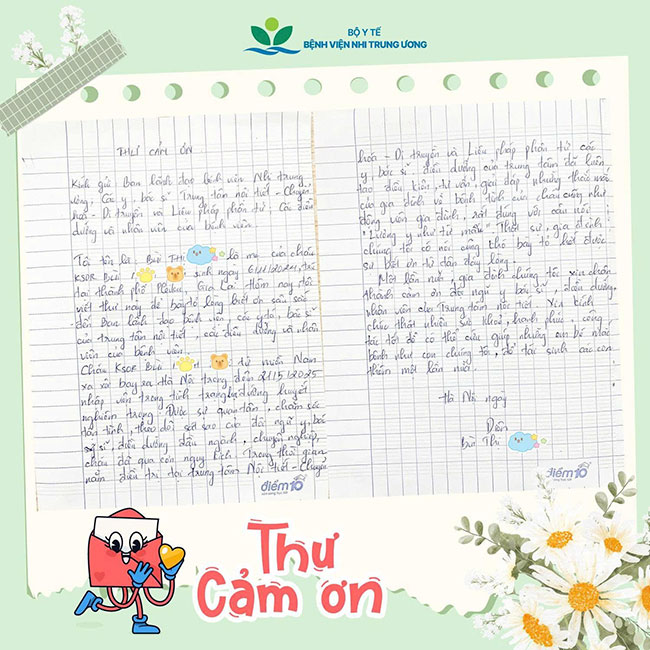 BỘ Y TẾ
BỆNH VIỆN NHI TRUNG ƯƠNG
THƯ CẢM ƠN
Kính gửi Ban lãnh đạo bệnh viện Nhi trung
ương, Các y, bác sĩ Trung tâm nội tiết - Chuyển
hoá - Di truyền và Liệu pháp phân tử, Các điều
dưỡng và nhân viên của bệnh viện.
Tôi tên là: Bùi Thị là mẹ của cháu
KSOR Bùi H sinh ngày 6/11/2024, trú
tại thành phố Pleiku, Gia Lai. Hôm nay tôi
viết thư này để bày tỏ lòng biết ơn sâu sắc
đến Ban lãnh đạo bệnh viện, các y tá, bác sĩ
của trung tâm nội tiết, các điều dưỡng và nhân
viên của bệnh viện.
Cháu KSOR Bùi từ miền Nam
xa xôi bay ra Hà Nội trong đêm 21/5/2025
nhập viện trong tình trạng hạ đường huyết
nghiêm trọng. Được sự quan tâm, chăm sóc
tận tình, theo dõi sát sao của đội ngũ y, bác
sĩ, điều dưỡng đầu ngành, chuyên nghiệp,
cháu đã qua cơn nguy kịch. Trong thời gian
nằm điều trị tại trung tâm Nội tiết - Chuyển
điểm10
hoá - Di truyền và Liệu pháp phân tử các
y, bác sĩ, điều dưỡng của trung tâm đã luôn
tạo điều kiện, tư vấn, giải đáp những thắc mắc
của gia đình về bệnh tình của cháu cũng như
động viên gia đình, rất đúng với câu nói
"Lương y như từ mẫu". Thật sự, gia đình
chúng tôi có nói cũng khó bày tỏ hết được
sự biết ơn từ tận đáy lòng.
Một lần nữa, gia đình chúng tôi xin chân
thành cảm ơn đội ngũ y bác sĩ, điều dưỡng
nhân viên của Trung tâm nội tiết. Xin kính
chúc thật nhiều sức khoẻ, hạnh phúc, công
tác tốt để có thể cứu giúp những em bé mắc
bệnh như con chúng tôi, để tái sinh các con
thêm một lần nữa.
Hà Nội, ngày
Bùi Thị
điểm10
Thư
Cảm ơn